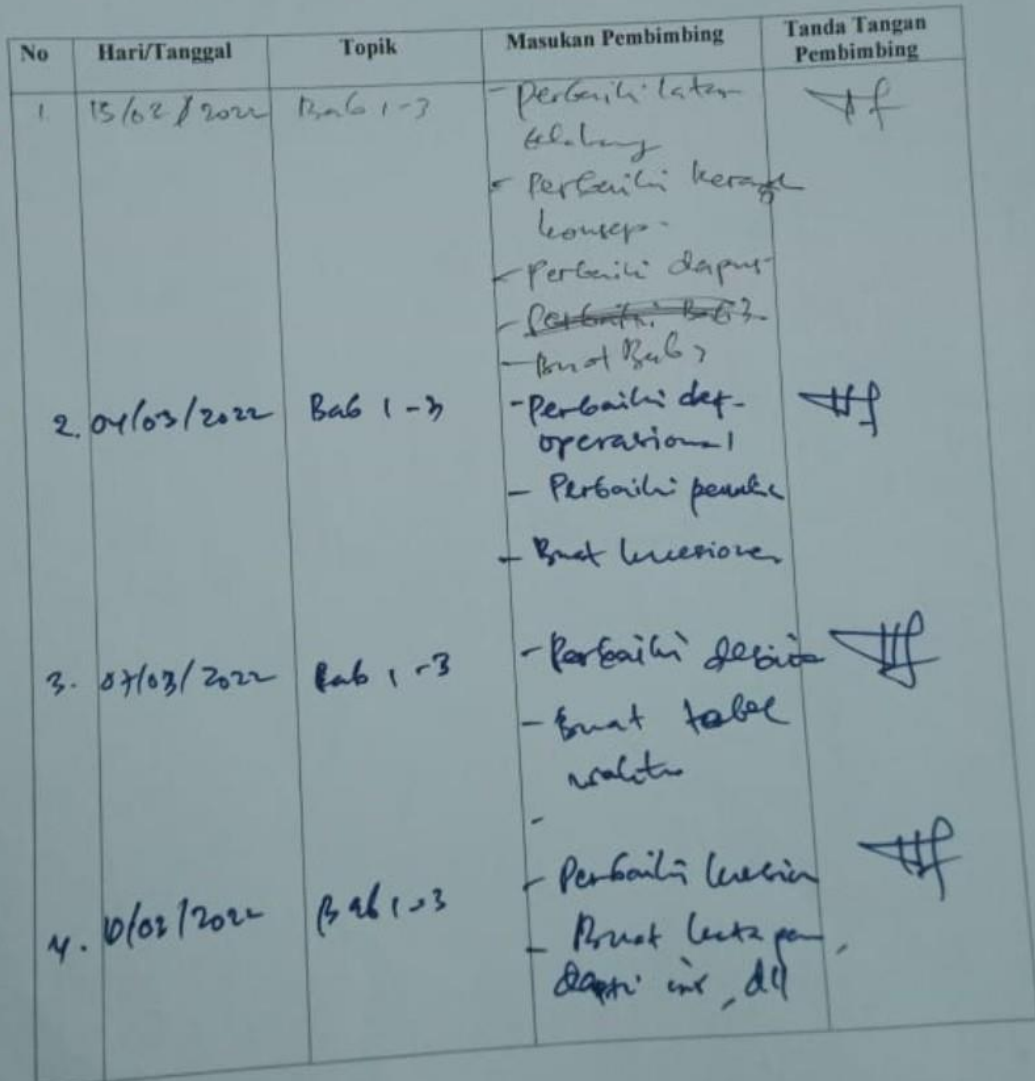 No Hari/Tanggal Topik Masukan Pembimbing Tanda Tangan Pembimbing
1. 15/02/2022 Bab 1-3 - Perbaiki latar
belakang
- Perbaiki kerangk
konsep
- Perbaiki dapus
- Perbaiki Bab 3
- Buat Bab 3
2. 04/03/2022 Bab 1-3 - Perbaiki def.
operasional
- Perbaiki
- Buat kuesioner
3. 07/03/2022 Bab 1-3 - Perbaiki
- Buat tabel
waktu
-
- Perbaiki
4. 10/03/2022 Bab 1-3 - Buat kata
dll